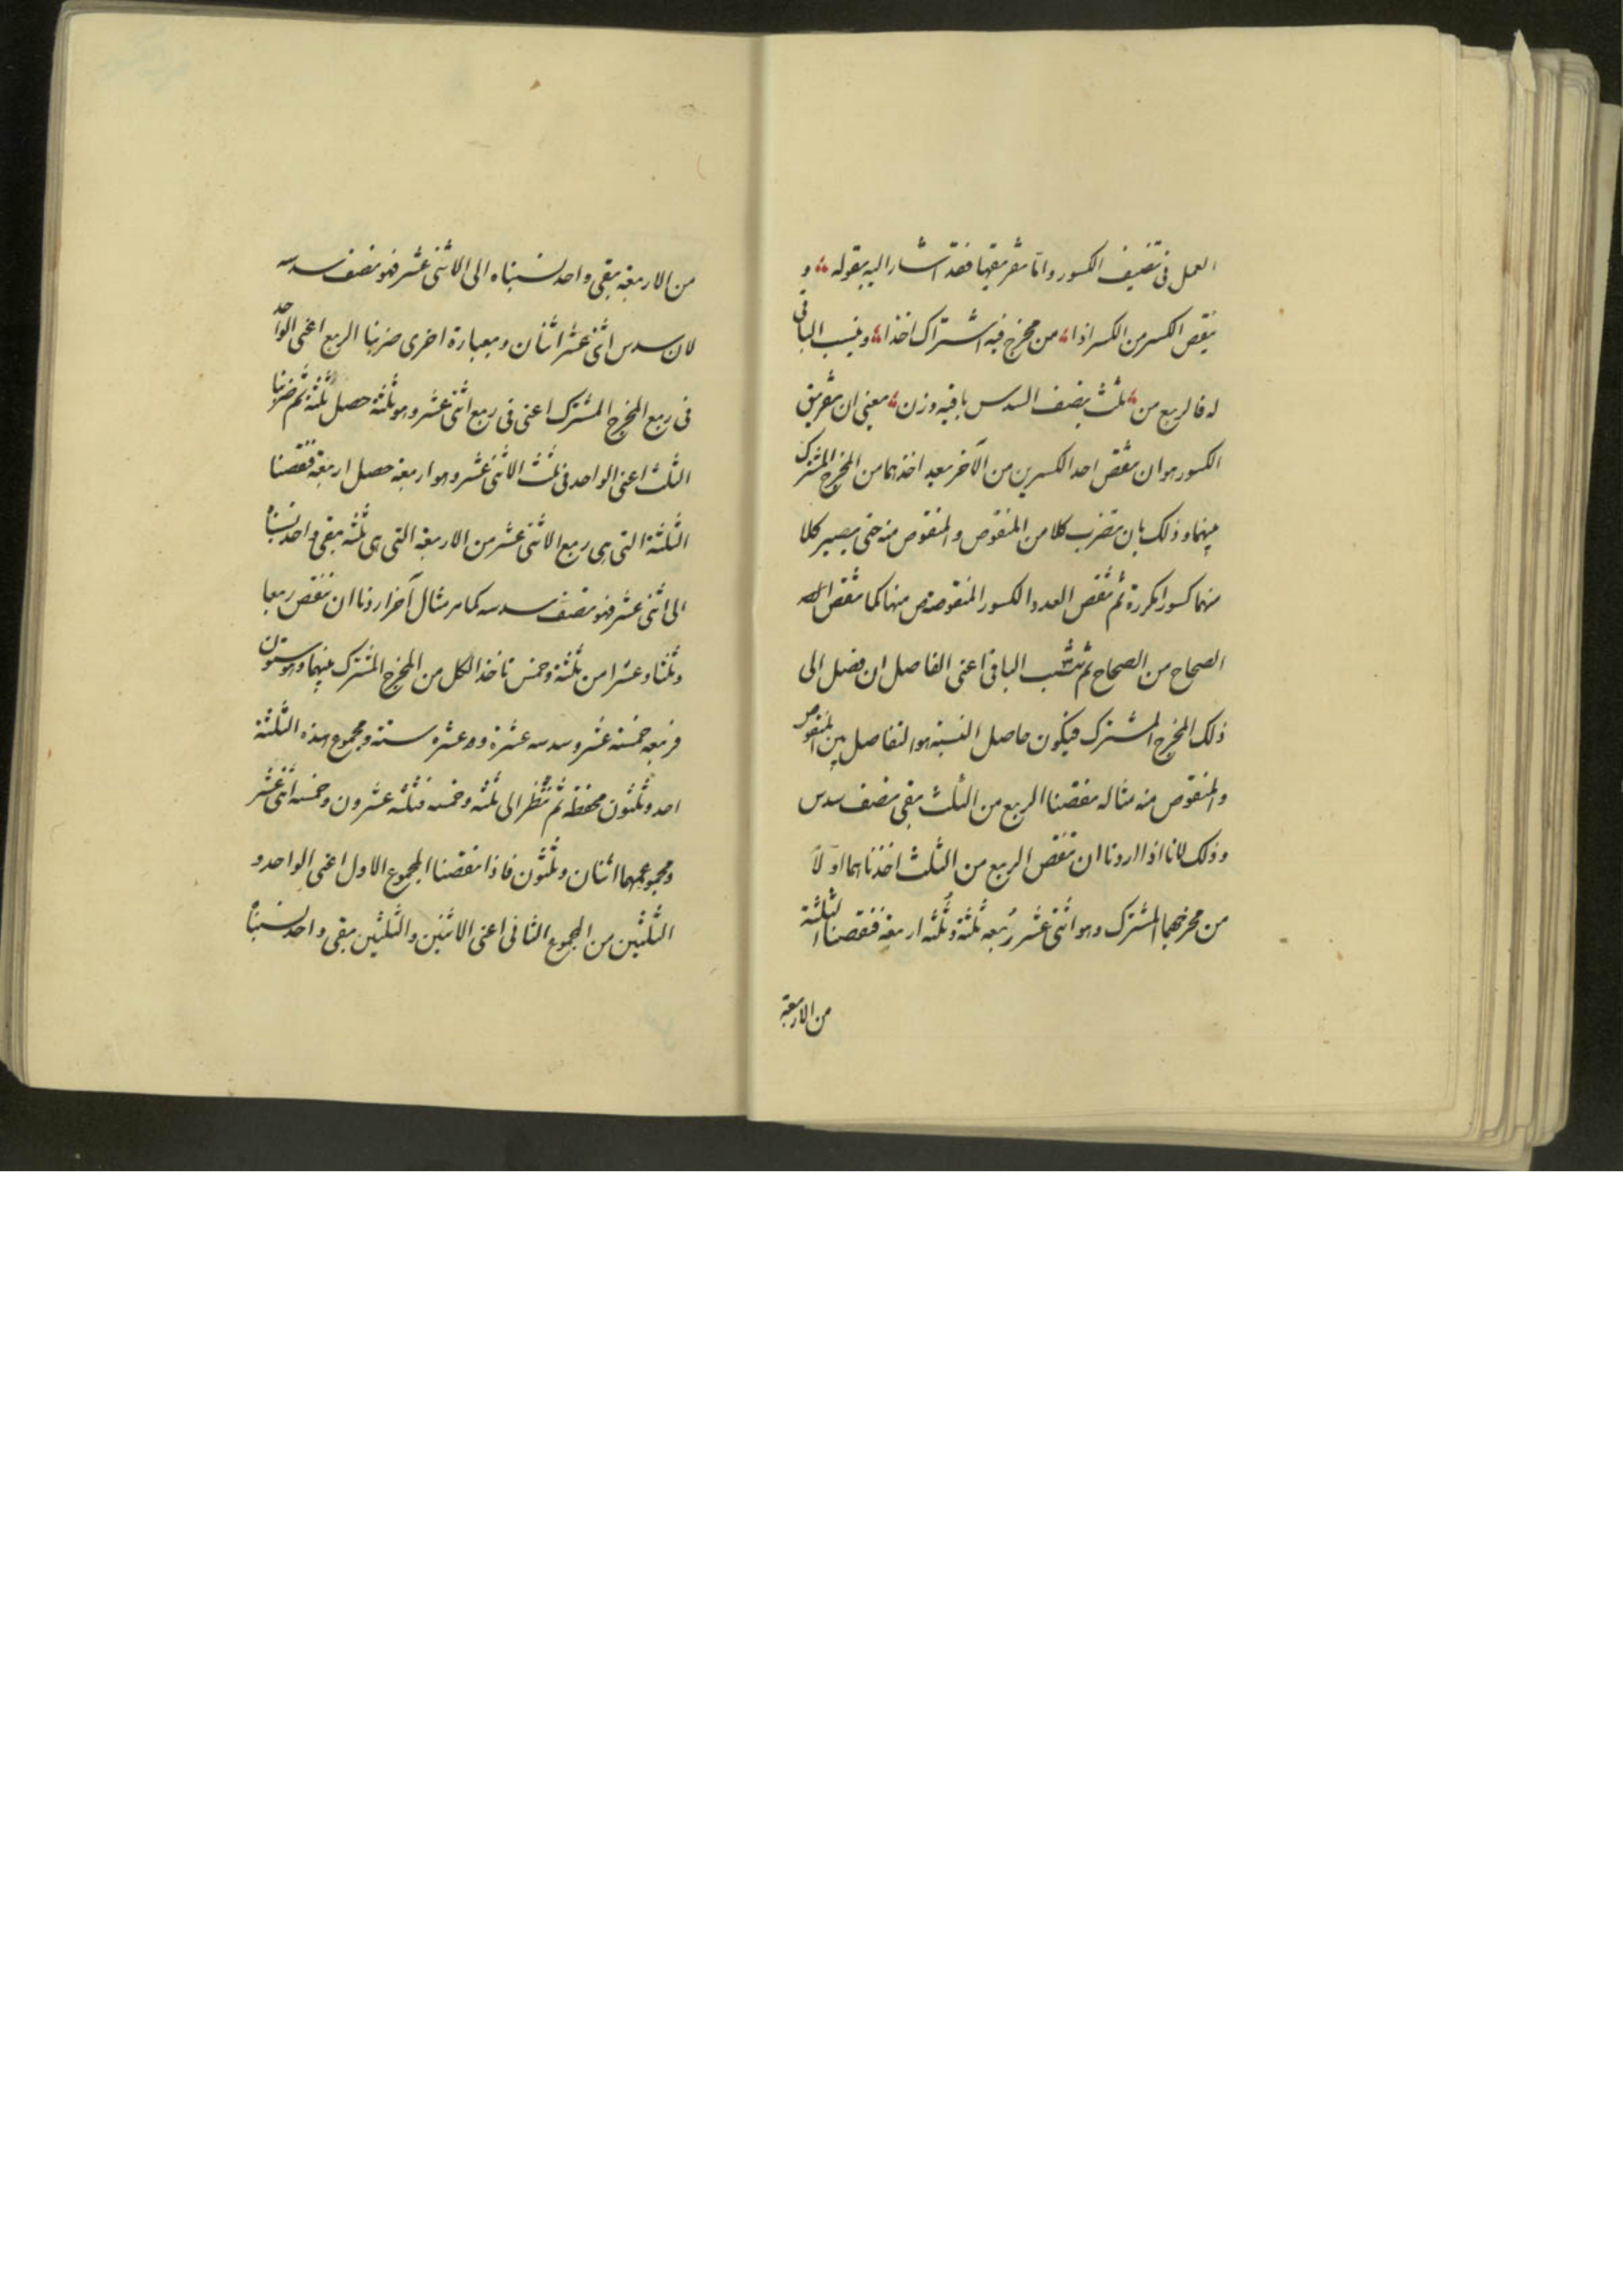 العمل فى تضيف الكسور واما تفريقها فقد اشار اليه بقوله و
ينقص الكسر من الكسر اذا من مخرج فيه اشتراك اخذا وينسب الباقى
له فالربع من ثلث بنصف السدس باقيه وزن يعنى ان تفريق
الكسور هو ان تنقص احد الكسرين من الآخر بعد اخذهما من المخرج المشترك
بينهما وذلك بان تضرب كلا من المنقوص والمنقوص منه حتى يصير كلا
منهما كسورا مكررة ثم تنقص العدد الكسور المنقوصة من منها كما تنقص
الصحاح من الصحاح ثم تنسب الباقى اعنى الفاصل ان فضل الى
ذلك المخرج المشترك فيكون حاصل النسبة هو التفاصل بين المنقوص
والمنقوص منه مثاله نقصنا الربع من الثلث بقى نصف سدس
وذلك لانا اذا اردنا ان ننقص الربع من الثلث اخذناهما اولا
من مخرجهما المشترك وهو اثنى عشر ربعه ثلثة وثلثه اربعة فنقصنا الثلثة
من الاربعة
من الاربعة بقى واحد نسبناه الى الاثنى عشر فهو نصف سدسه
لان سدس اثنى عشر اثنان وبعبارة اخرى ضربنا الربع اعنى الواحد
فى ربع المخرج المشترك اعنى فى ربع اثنى عشر وهو ثلثة حصل ثلثة ثم ضربنا
الثلث اعنى الواحد فى ثلث الاثنى عشر وهو اربعة حصل اربعة فنقصنا
الثلثة التى هى ربع الاثنى عشر من الاربعة التى هى ثلثه بقى واحد نسبناه
الى اثنى عشر فهو نصف سدسه كما مر مثال آخر اردنا ان ننقص ربعا
وثلثا وعشرا من ثلثة وخمس ناخذ الكل من المخرج المشترك بينهما وهو ستون
فربعه خمسة عشر وسدسه عشرة وعشره ستة ومجموع هذه الثلثة
احد وثلثون نحفظه ثم ننظر الى ثلثه وخمسه فثلثه عشرون وخمسه اثنى عشر
ومجموعهما اثنان وثلثون فاذا نقصنا المجموع الاول اعنى الواحد و
الثلثين من المجموع الثانى اعنى الاثنين والثلثين بقى واحد نسبناه